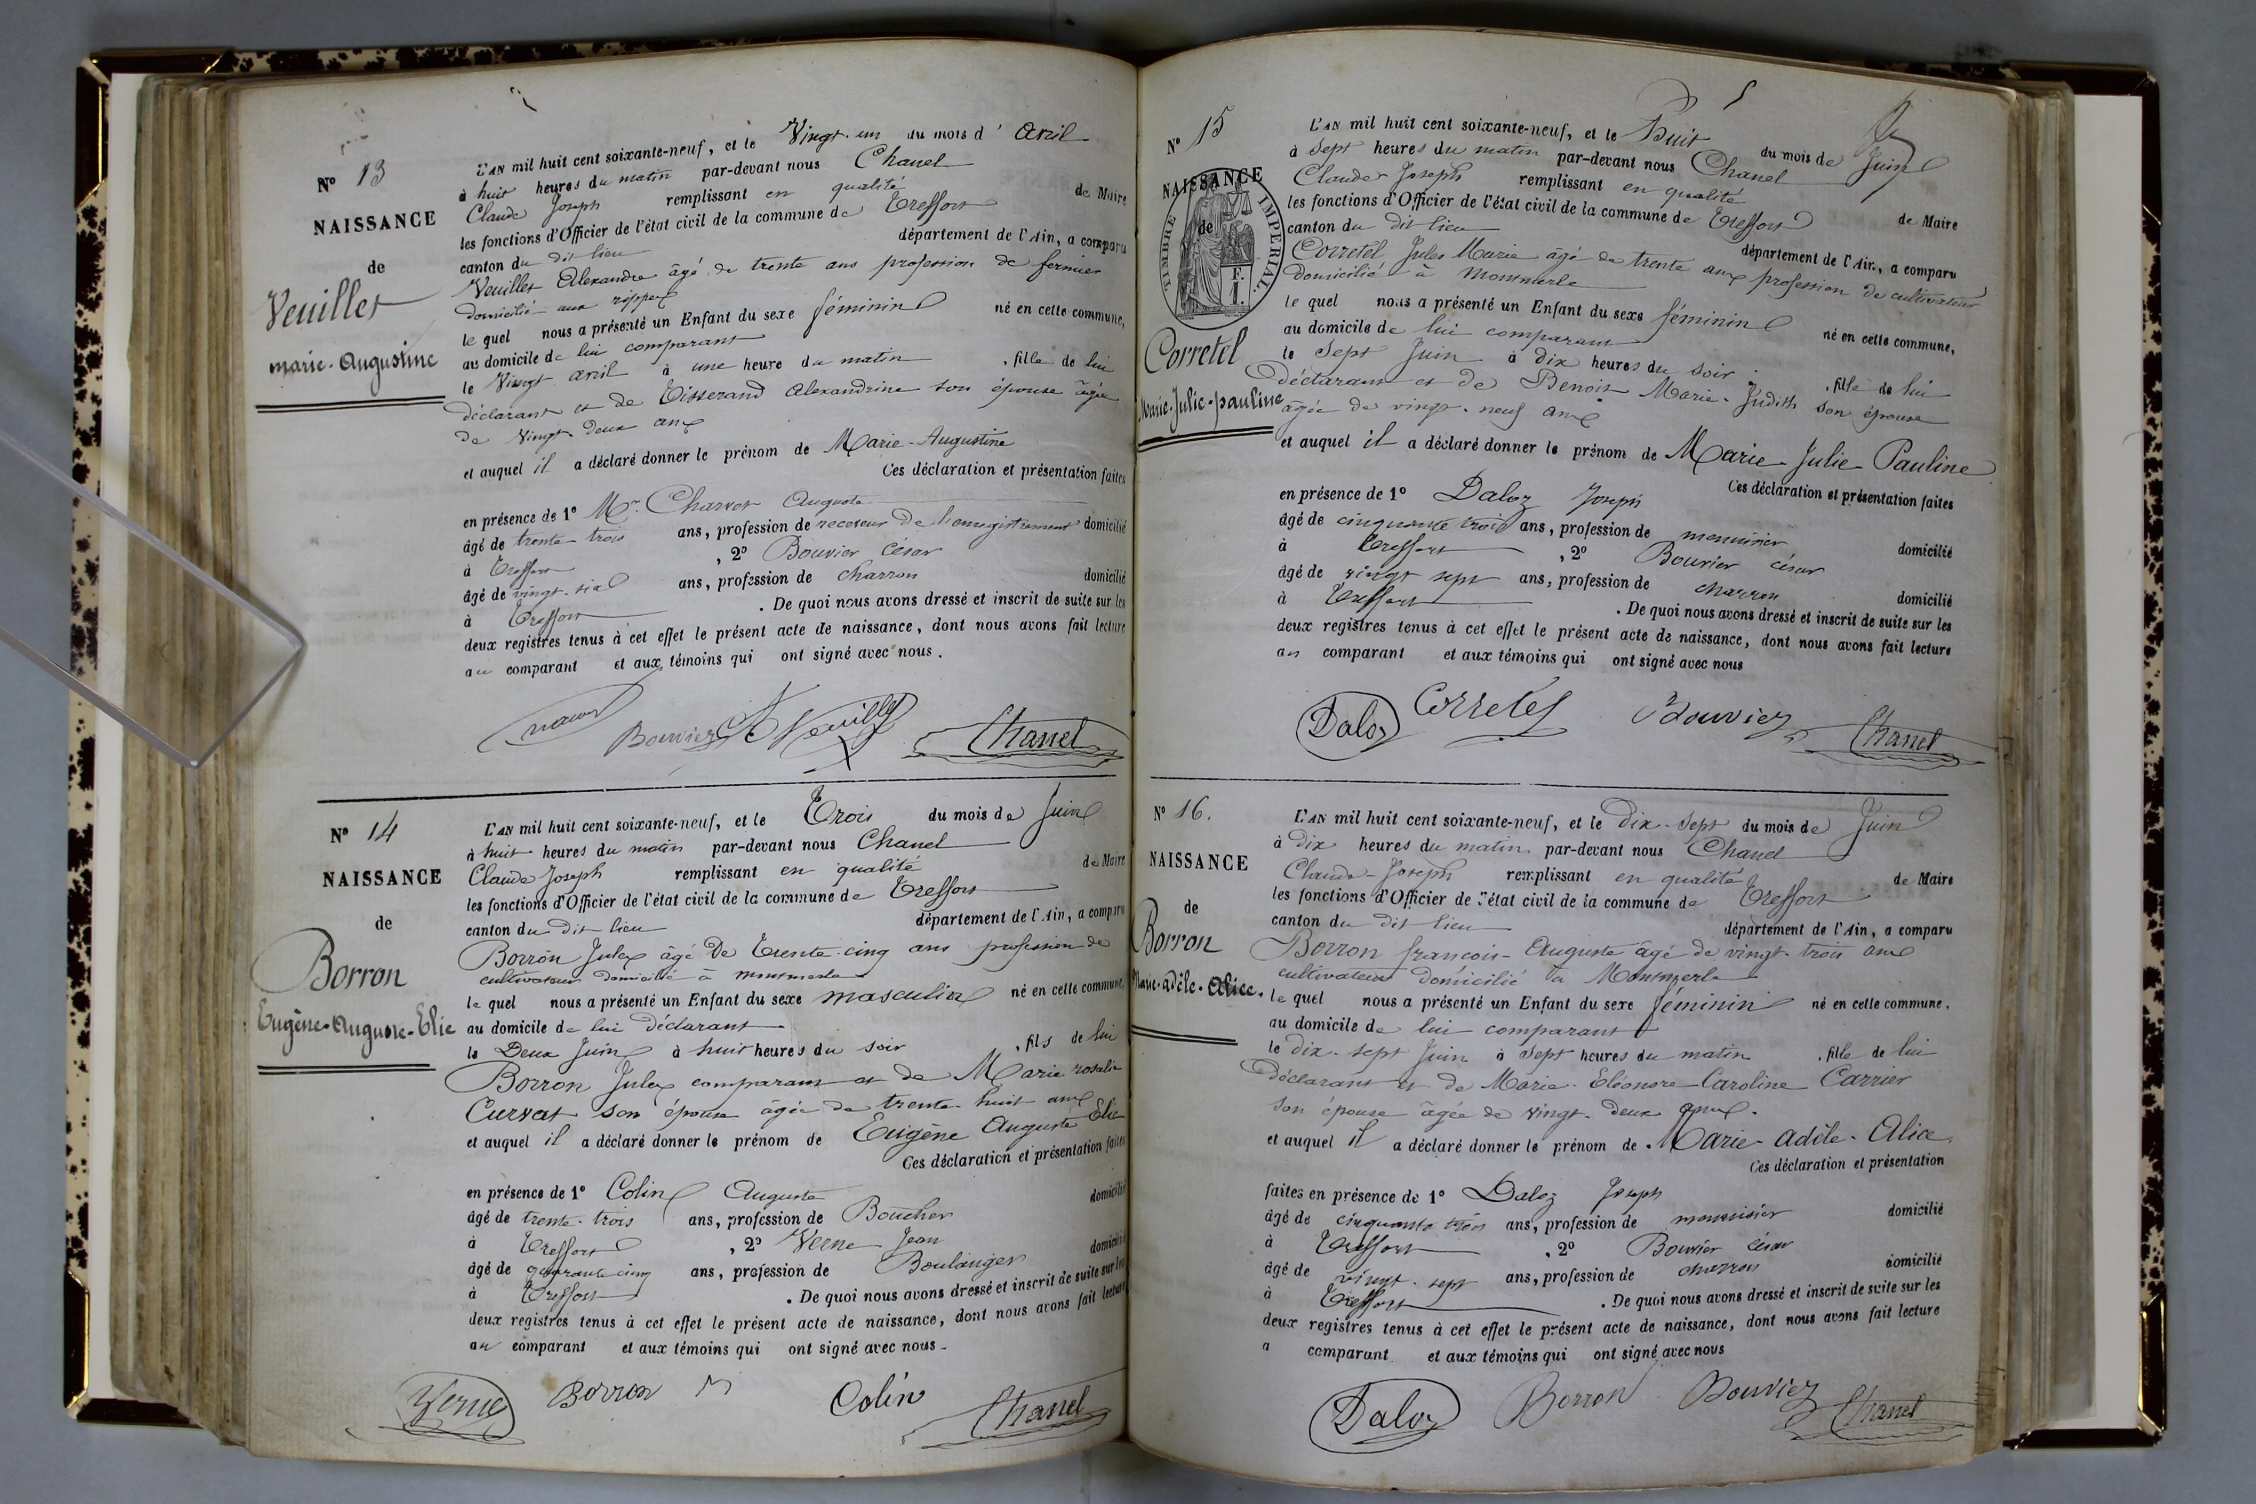 Nº 13
NAISSANCE
de
Veuillet
marie-Augustine
L'AN mil huit cent soixante-neuf, et le Vingt-un du mois d'avril
à huit heures du matin par-devant nous Chanel
Claude Joseph remplissant en qualité de Maire
les fonctions d'Officier de l'état civil de la commune de Treffort
canton du dit lieu département de l'Ain, a comparu
Veuillet Alexandre âgé de trente ans profession de fermier
domicilié aux rippes
le quel nous a présenté un Enfant du sexe féminin né en cette commune,
au domicile de lui comparant
le Vingt avril à une heure du matin , fille de lui
déclarant et de Tisserand Alexandrine son épouse âgée
de vingt-deux ans
et auquel il a déclaré donner le prénom de Marie-Augustine
Ces déclaration et présentation faites
en présence de 1º Mr. Charvet Auguste
âgé de trente-trois ans, profession de receveur de l'enregistrement domicilié
à Treffort , 2º Bouvier César
âgé de vingt-six ans, profession de charron domicilié
à Treffort . De quoi nous avons dressé et inscrit de suite sur les
deux registres tenus à cet effet le présent acte de naissance, dont nous avons fait lecture
au comparant et aux témoins qui ont signé avec nous.
Bouvier A Veuillet Chanel
Nº 14
NAISSANCE
de
Borron
Eugène-Auguste-Elie
L'AN mil huit cent soixante-neuf, et le Trois du mois de Juin
à huit heures du matin par-devant nous Chanel
Claude Joseph remplissant en qualité de Maire
les fonctions d'Officier de l'état civil de la commune de Treffort
canton du dit lieu département de l'Ain, a comparu
Borron Jules âgé De Trente-cinq ans profession de
cultivateur domicilié à montmerle
le quel nous a présenté un Enfant du sexe masculin né en cette commune,
au domicile de lui déclarant
le Deux Juin à huit heures du soir , fils de lui
Borron Jules comparant et de Marie rosalie
Curvat son épouse âgée de trente-huit ans
et auquel il a déclaré donner le prénom de Eugène Auguste Elie
Ces déclaration et présentation faites
en présence de 1º Colin Auguste
âgé de trente-trois ans, profession de Boucher domicilié
à Treffort , 2º Verne Jean
âgé de quarante cinq ans, profession de Boulanger domicilié
à Treffort . De quoi nous avons dressé et inscrit de suite sur les
deux registres tenus à cet effet le présent acte de naissance, dont nous avons fait lecture
au comparant et aux témoins qui ont signé avec nous.
Verne Borron Colin Chanel
Nº 15
NAISSANCE
de
TIMBRE IMPERIAL.
F.
1.
Corretel
Marie-Julie-pauline
L'AN mil huit cent soixante-neuf, et le Huit du mois de Juin
à Sept heures du matin par-devant nous Chanel
Claude Joseph remplissant en qualité de Maire
les fonctions d'Officier de l'état civil de la commune de Treffort
canton du dit lieu département de l'Ain, a comparu
Corretel Jules Marie âgé de trente ans profession de cultivateur
Domicilié à Montmerle
le quel nous a présenté un Enfant du sexe féminin né en cette commune,
au domicile de lui comparant
le Sept Juin à dix heures du soir , fille de lui
déclarant et de Benoit Marie-Judith son épouse
âgée de vingt-neuf ans
et auquel il a déclaré donner le prénom de Marie-Julie-Pauline
Ces déclaration et présentation faites
en présence de 1º Daloz Joseph
âgé de cinquante trois ans, profession de menuisier domicilié
à Treffort , 2º Bouvier césar
âgé de vingt sept ans, profession de charron domicilié
à Treffort . De quoi nous avons dressé et inscrit de suite sur les
deux registres tenus à cet effet le présent acte de naissance, dont nous avons fait lecture
au comparant et aux témoins qui ont signé avec nous
Daloz Corretel Bouvier Chanel
Nº 16.
NAISSANCE
de
Borron
Marie-adèle-Alice.
L'AN mil huit cent soixante-neuf, et le Dix-Sept du mois de Juin
à Dix heures du matin par-devant nous Chanel
Claude-Joseph remplissant en qualité de Maire
les fonctions d'Officier de l'état civil de la commune de Treffort
canton du dit lieu département de l'Ain, a comparu
Borron françois-Auguste âgé de vingt-trois ans
cultivateur domicilié à Montmerle
le quel nous a présenté un Enfant du sexe féminin né en cette commune,
au domicile de lui comparant
le dix-sept Juin à Sept heures du matin , fille de lui
Déclarant et de Marie-Eléonore-Caroline Carrier
son épouse âgée de vingt-deux ans.
et auquel il a déclaré donner le prénom de Marie-adèle-Alice
Ces déclaration et présentation
faites en présence de 1º Daloz Joseph
âgé de cinquante trois ans, profession de menuisier domicilié
à Treffort , 2º Bouvier césar
âgé de vingt-sept ans, profession de charron domicilié
à Treffort . De quoi nous avons dressé et inscrit de suite sur les
deux registres tenus à cet effet le présent acte de naissance, dont nous avons fait lecture
a comparant et aux témoins qui ont signé avec nous
Daloz Borron Bouvier Chanel